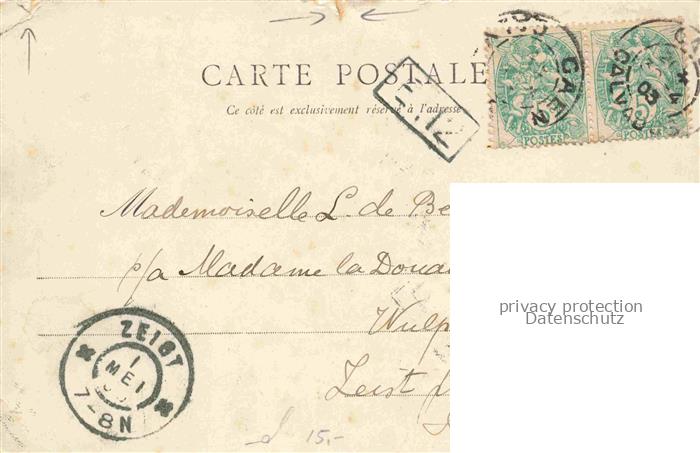 CARTE POSTALE
Ce côté est exclusivement réservé à l'adresse
CAEN
CALVADOS
03
POSTES
POSTES
Mademoiselle L. de Be
p/a Madame la Doua
Wulp
Zeist
privacy protection
Datenschutz
ZEIST
1
MEI
7-8N
15,-